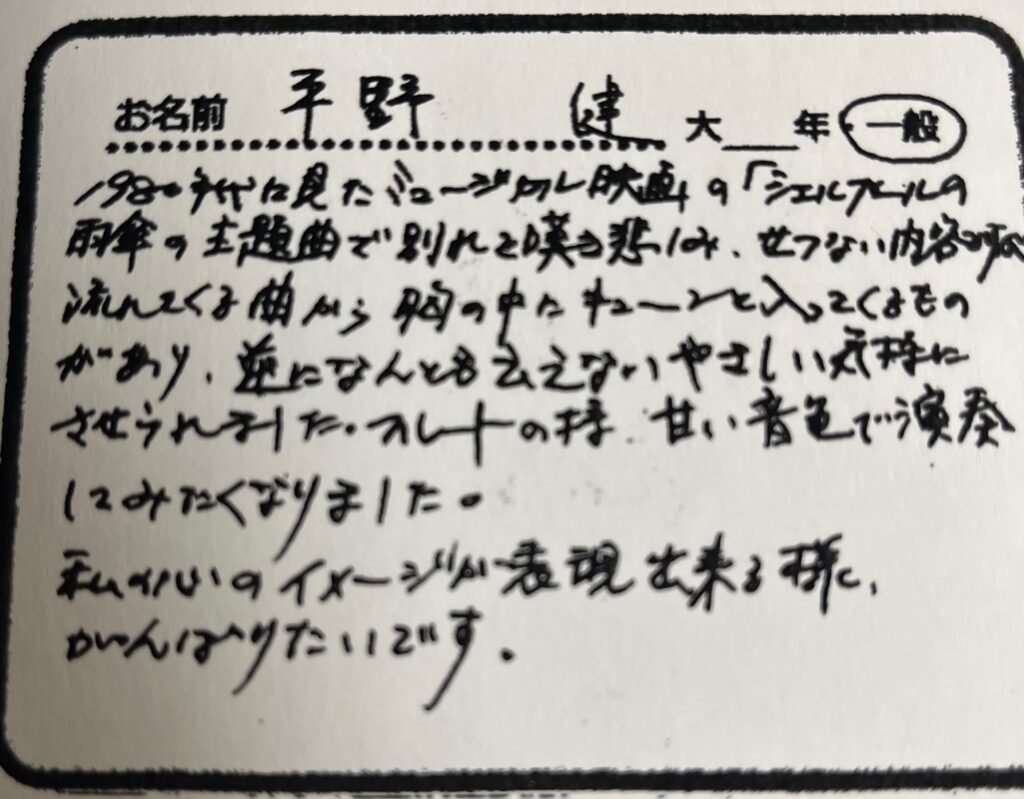 お名前 平野 健 大___年・一般
1980年代に見たミュージカル映画の「シェルブールの
雨傘の主題曲で別れを嘆き悲しみ、せつない内容ですが
流れてくる曲から胸の中にキューンと入ってくるもの
があり、逆になんとも云えないやさしい気持に
させられました。フルートの様、甘い音色でう演奏
してみたくなりました。
私の心のイメージが表現出来る様に、
がんばりたいです。